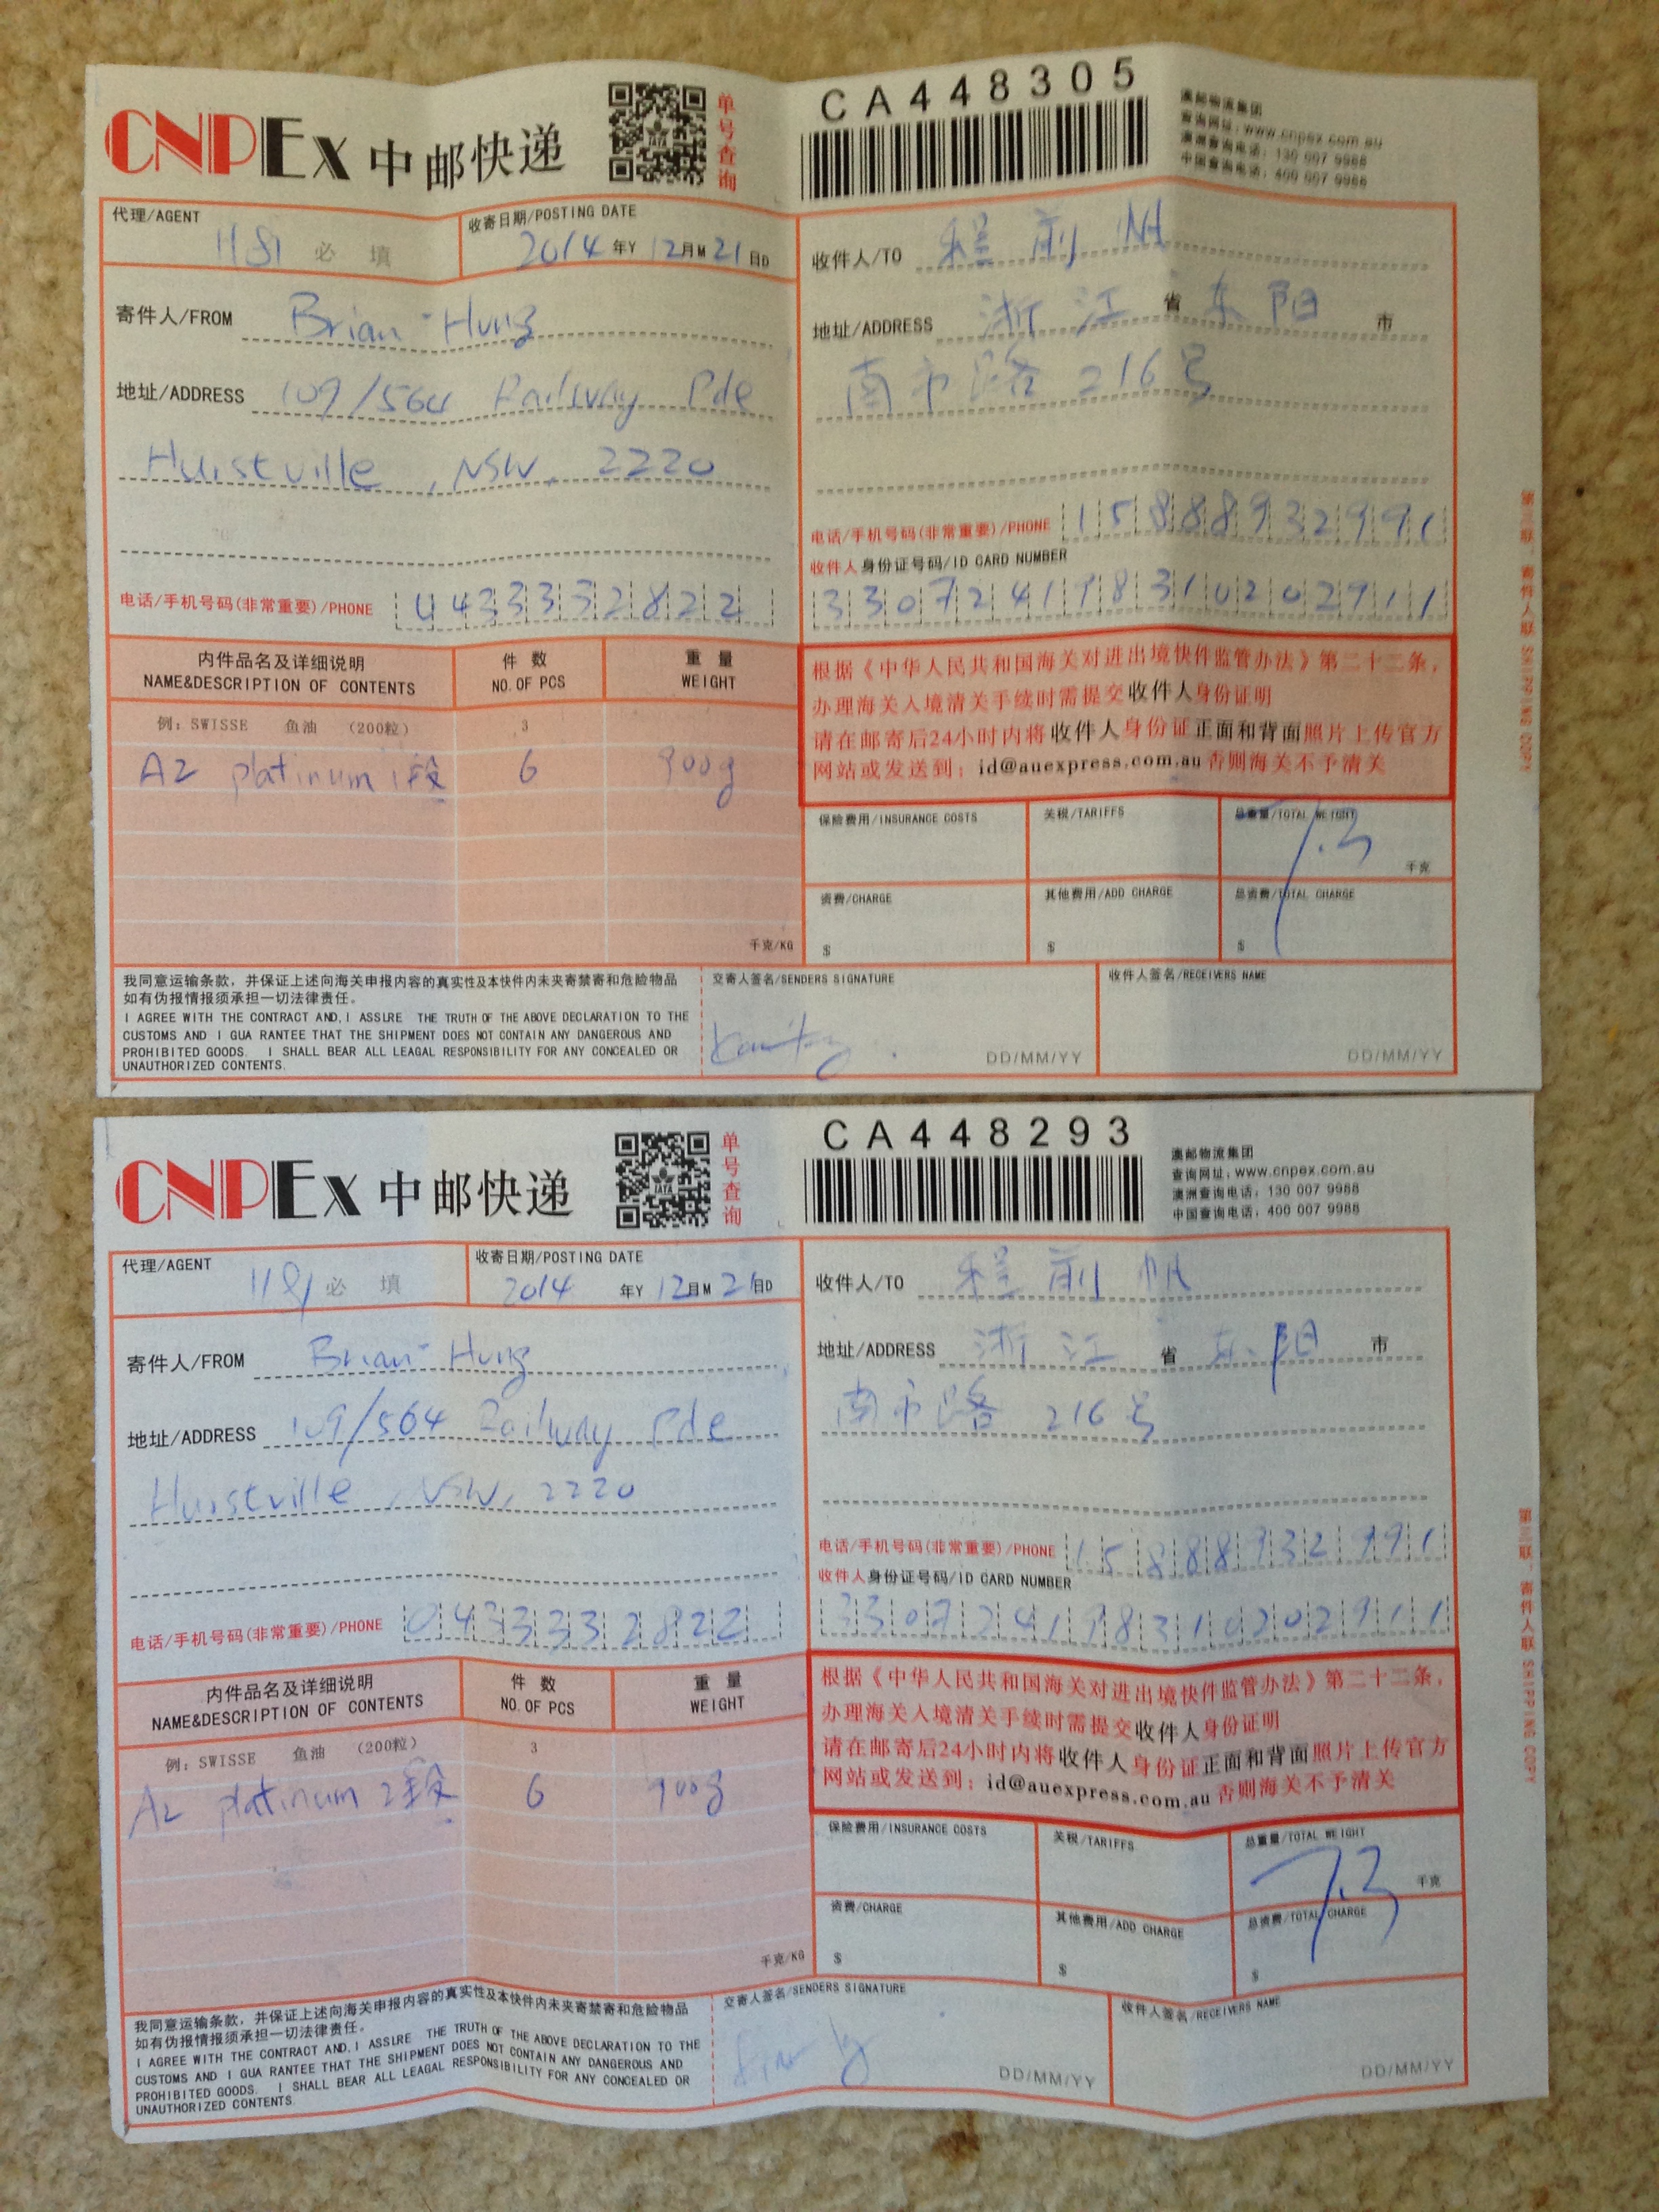 CNPEx 中邮快递
单号查询
CA448305
澳邮物流集团
查询网址：www.cnpex.com.au
澳洲查询电话：130 007 9988
中国查询电话：400 007 9988
代理/AGENT 1181 必 填
收寄日期/POSTING DATE
2014 年Y 12月M 21日D
寄件人/FROM Brian Hung
地址/ADDRESS 109/564 Railway Pde
Hurstville, NSW, 2220
电话/手机号码(非常重要)/PHONE 0433332822
收件人/TO 程前帆
地址/ADDRESS 浙江 省 东阳 市
南市路 216号
电话/手机号码(非常重要)/PHONE 15888932991
收件人身份证号码/ID CARD NUMBER
330724198310202911
内件品名及详细说明
NAME&DESCRIPTION OF CONTENTS
件 数
NO.OF PCS
重 量
WEIGHT
例：SWISSE 鱼油 （200粒） 3
A2 platinum 1段 6 900g
千克/KG
根据《中华人民共和国海关对进出境快件监管办法》第二十二条，
办理海关入境清关手续时需提交收件人身份证明
请在邮寄后24小时内将收件人身份证正面和背面照片上传官方
网站或发送到：id@auexpress.com.au 否则海关不予清关
保险费用/INSURANCE COSTS
关税/TARIFFS
总重量/TOTAL WEIGHT
7.3 千克
资费/CHARGE
$
其他费用/ADD CHARGE
$
总资费/TOTAL CHARGE
$
我同意运输条款，并保证上述向海关申报内容的真实性及本快件内未夹寄禁寄和危险物品
如有伪报情报须承担一切法律责任。
I AGREE WITH THE CONTRACT AND, I ASSLRE THE TRUTH OF THE ABOVE DECLARATION TO THE
CUSTOMS AND I GUA RANTEE THAT THE SHIPMENT DOES NOT CONTAIN ANY DANGEROUS AND
PROHIBITED GOODS. I SHALL BEAR ALL LEAGAL RESPONSIBILITY FOR ANY CONCEALED OR
UNAUTHORIZED CONTENTS.
交寄人签名/SENDERS SIGNATURE
DD/MM/YY
收件人签名/RECEIVERS NAME
DD/MM/YY
第三联：寄件人联 SHIPPING COPY
CNPEx 中邮快递
单号查询
CA448293
澳邮物流集团
查询网址：www.cnpex.com.au
澳洲查询电话：130 007 9988
中国查询电话：400 007 9988
代理/AGENT 1181 必 填
收寄日期/POSTING DATE
2014 年Y 12月M 21日D
寄件人/FROM Brian Hung
地址/ADDRESS 109/564 Railway Pde
Hurstville, NSW, 2220
电话/手机号码(非常重要)/PHONE 0433332822
收件人/TO 程前帆
地址/ADDRESS 浙江 省 东阳 市
南市路 216号
电话/手机号码(非常重要)/PHONE 15888932991
收件人身份证号码/ID CARD NUMBER
330724198310202911
内件品名及详细说明
NAME&DESCRIPTION OF CONTENTS
件 数
NO.OF PCS
重 量
WEIGHT
例：SWISSE 鱼油 （200粒） 3
A2 platinum 2段 6 900g
千克/KG
根据《中华人民共和国海关对进出境快件监管办法》第二十二条，
办理海关入境清关手续时需提交收件人身份证明
请在邮寄后24小时内将收件人身份证正面和背面照片上传官方
网站或发送到：id@auexpress.com.au 否则海关不予清关
保险费用/INSURANCE COSTS
关税/TARIFFS
总重量/TOTAL WEIGHT
7.3 千克
资费/CHARGE
$
其他费用/ADD CHARGE
$
总资费/TOTAL CHARGE
$
我同意运输条款，并保证上述向海关申报内容的真实性及本快件内未夹寄禁寄和危险物品
如有伪报情报须承担一切法律责任。
I AGREE WITH THE CONTRACT AND, I ASSLRE THE TRUTH OF THE ABOVE DECLARATION TO THE
CUSTOMS AND I GUA RANTEE THAT THE SHIPMENT DOES NOT CONTAIN ANY DANGEROUS AND
PROHIBITED GOODS. I SHALL BEAR ALL LEAGAL RESPONSIBILITY FOR ANY CONCEALED OR
UNAUTHORIZED CONTENTS.
交寄人签名/SENDERS SIGNATURE
DD/MM/YY
收件人签名/RECEIVERS NAME
DD/MM/YY
第三联：寄件人联 SHIPPING COPY